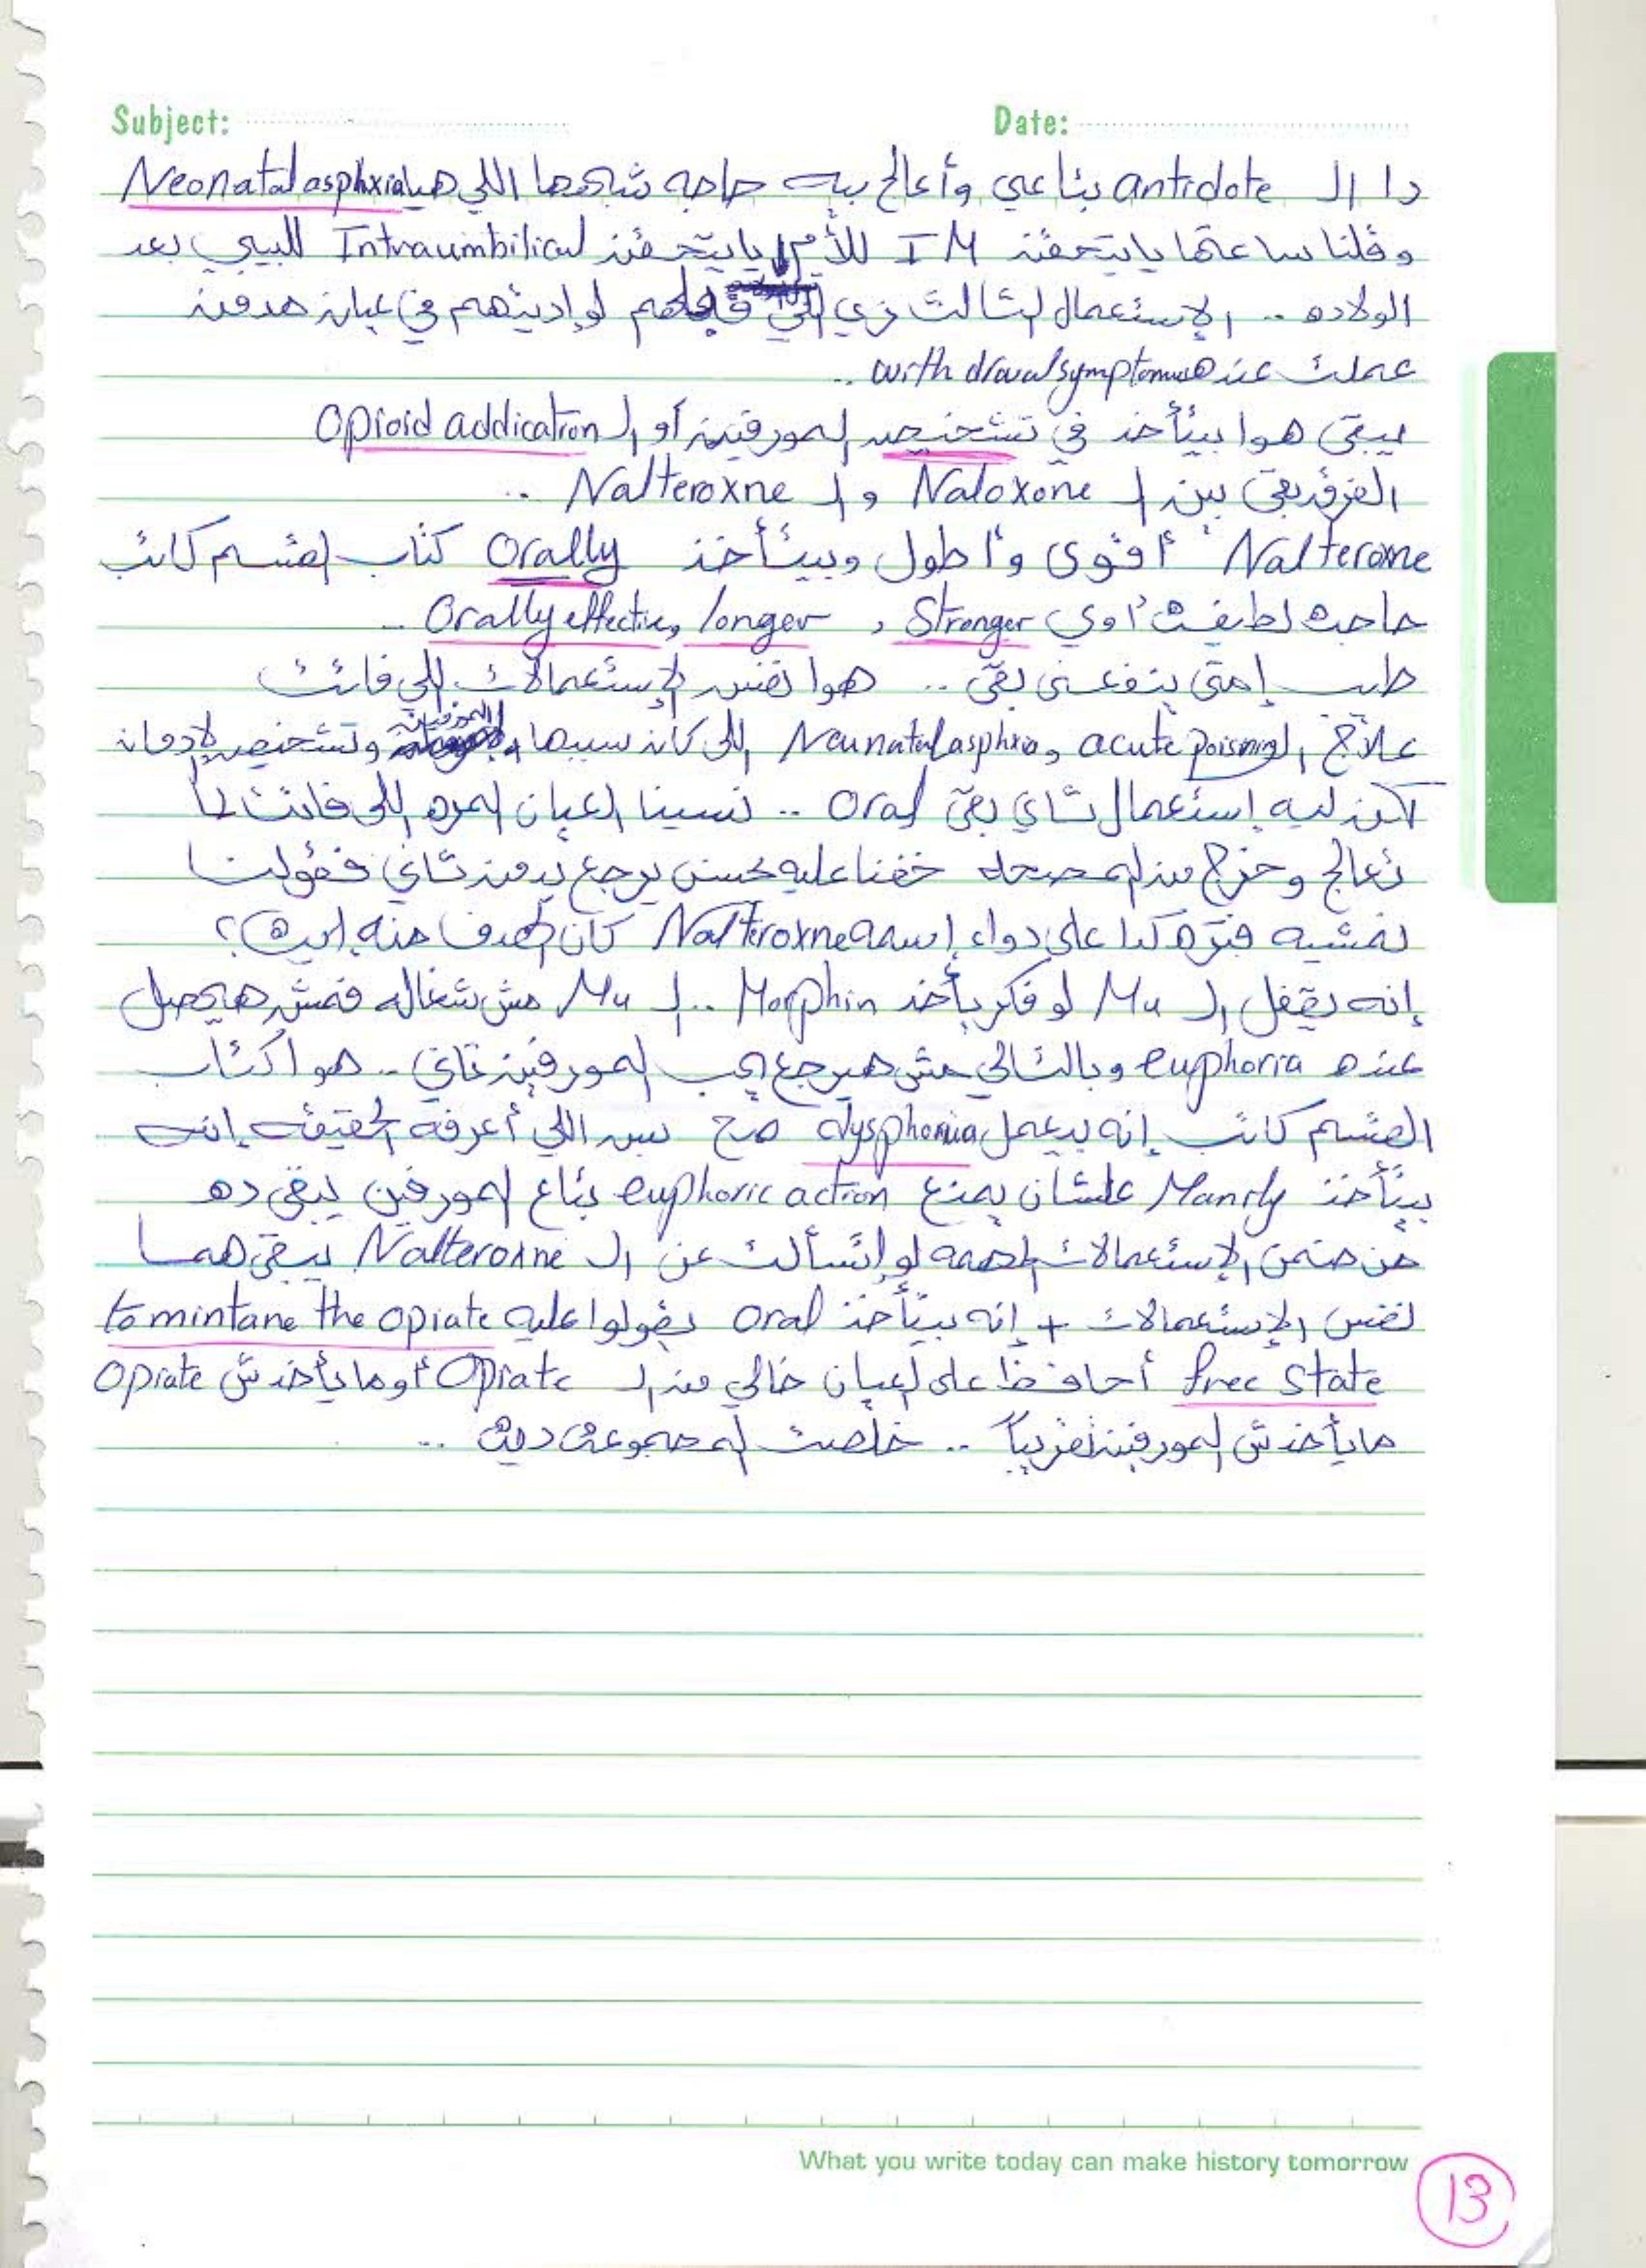 Subject: Date:
دا الـ antidote بتاعي وأعالج بيه حاجه شبهها اللي هيا Neonatal asphxia
وقلنا ساعتها يا يتحقن IM للأم يا يتحقن Intraumbilical للبيبي بعد
الولاده .. الإستعمال التالت زي اللي قبلهم لو اديتهم في عيان مدمن
عملت عنده with drawal symptoms ..
يبقى هوا بيتأخد في تشخيص المورفين أو الـ Opioid addication
الفرق بقى بين الـ Naloxone و الـ Nalteroxne ..
Nalteroxne أقوى وأطول وبيتأخد Orally كتاب القسم كاتب
حاجه لطيفة أوي Stronger , longer , Orally effective ..
طيب إمتى ينفعني بقى .. هوا نفس الإستعمالات اللي فاتت
علاج الـ acute poisning و Neunatal asphxia اللي كان سببها المورفين وتشخيص الإدمان
لكن ليه إستعمال تاني بقى Oral .. نسينا العيان المره اللي فاتت لما
تعالج وخرج من المصحه خفنا عليه لحسن يرجع يدمن تاني فقولت
نمشيه فترة كدا على دواء اسمه Nalteroxne كان الهدف منه إيه؟
إنه يقفل الـ Mu لو فكر يأخد Morphin .. الـ Mu مش شغاله فمش هايحصل
عنده euphoria وبالتالي مش هيرجع يحب المورفين تاني .. هوا كتاب
القسم كاتب إنه بيعمل dysphoria صح بس اللي أعرفه الحقيقه إنه
بيتأخد Manrly علشان يمنع euphoric action بتاع المورفين يبقى ده
من ضمن الإستعمالات المهمه لو إتسألت عن الـ Nalteroxne يبقى هما
نفس الإستعمالات + إنه بيتأخد oral بيقولوا عليه to mintane the opiate
free state أحافظ على العيان خالي من الـ Opiate أو ما يأخدش Opiate
مايأخدش المورفين تقريباً .. خلصت المجموعة ديه ..
What you write today can make history tomorrow
13